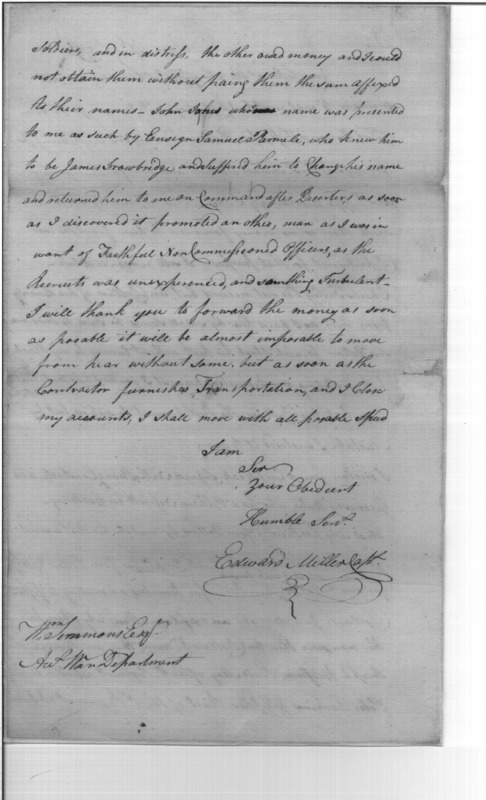 Soldiers, and in distress, the other owed money and I could
not obtain them without paing them the sum affixed
to their names - John Jones name was presented
to me as such by Ensign Samuel Parmele, who knew him
to be James Trowbridge and suffered him to Change his name
and returned him to me on Command after Deserters, as soon
as I discovered it promoted another, man as I was in
want of Faithful Non Commissioned Officers, as the
Recruits was unexperienced, and somthing Turbulent -
I will thank you to forward the money as soon
as posable it will be almost imposable to move
from hear without some, but as soon as the
Contractor furnishes Transportation, and I Close
my accounts, I shall move with all posable Speed
I am
Ser
your Obedient
Humble Servt.
Edward Miller Capt.
Wm Simmons Esqr.
Acct. War Department